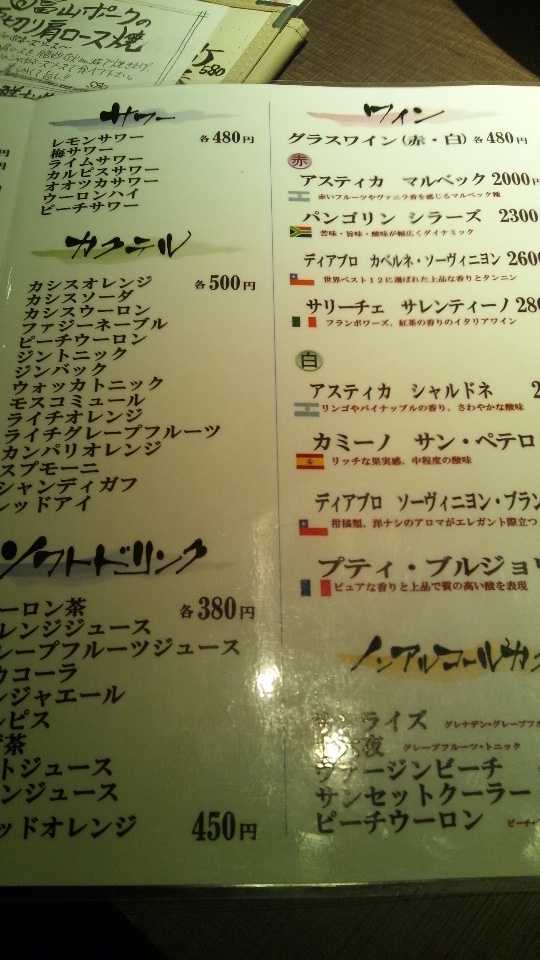 富山ポークの
切り肩ロース焼
580
サワー
レモンサワー 各480円
梅サワー
ライムサワー
カルピスサワー
オオツカサワー
ウーロンハイ
ピーチサワー
カクテル
カシスオレンジ 各500円
カシスソーダ
カシスウーロン
ファジーネーブル
ピーチウーロン
ジントニック
ジンバック
ウォッカトニック
モスコミュール
ライチオレンジ
ライチグレープフルーツ
カンパリオレンジ
スプモーニ
シャンディガフ
レッドアイ
ソフトドリンク
ーロン茶 各380円
レンジジュース
レープフルーツジュース
コーラ
ンジャエール
ルピス
茶
トジュース
ンジュース
ッドオレンジ 450円
ワイン
グラスワイン(赤・白) 各480円
赤
アスティカ マルベック 2000円
赤いフルーツやヴァニラ香を感じるマルベック種
パンゴリン シラーズ 2300
苦味・旨味・酸味が幅広くダイナミック
ディアブロ カベルネ・ソーヴィニヨン 2600
世界ベスト12に選ばれた上品な香りとタンニン
サリーチェ サレンティーノ 280
フランボワーズ、紅茶の香りのイタリアワイン
白
アスティカ シャルドネ 2
リンゴやパイナップルの香り、さわやかな酸味
カミーノ サン・ペテロ
リッチな果実感、中程度の酸味
ディアブロ ソーヴィニヨン・ブラン
柑橘類、洋ナシのアロマがエレガント際立つ
プティ・ブルジョワ
ピュアな香りと上品で質の高い酸を表現
ノンアルコールカク
サンライズ グレナデン・グレープフ
夜 グレープフルーツ・トニック
ヴァージンピーチ
サンセットクーラー
ピーチウーロン ピーチ・